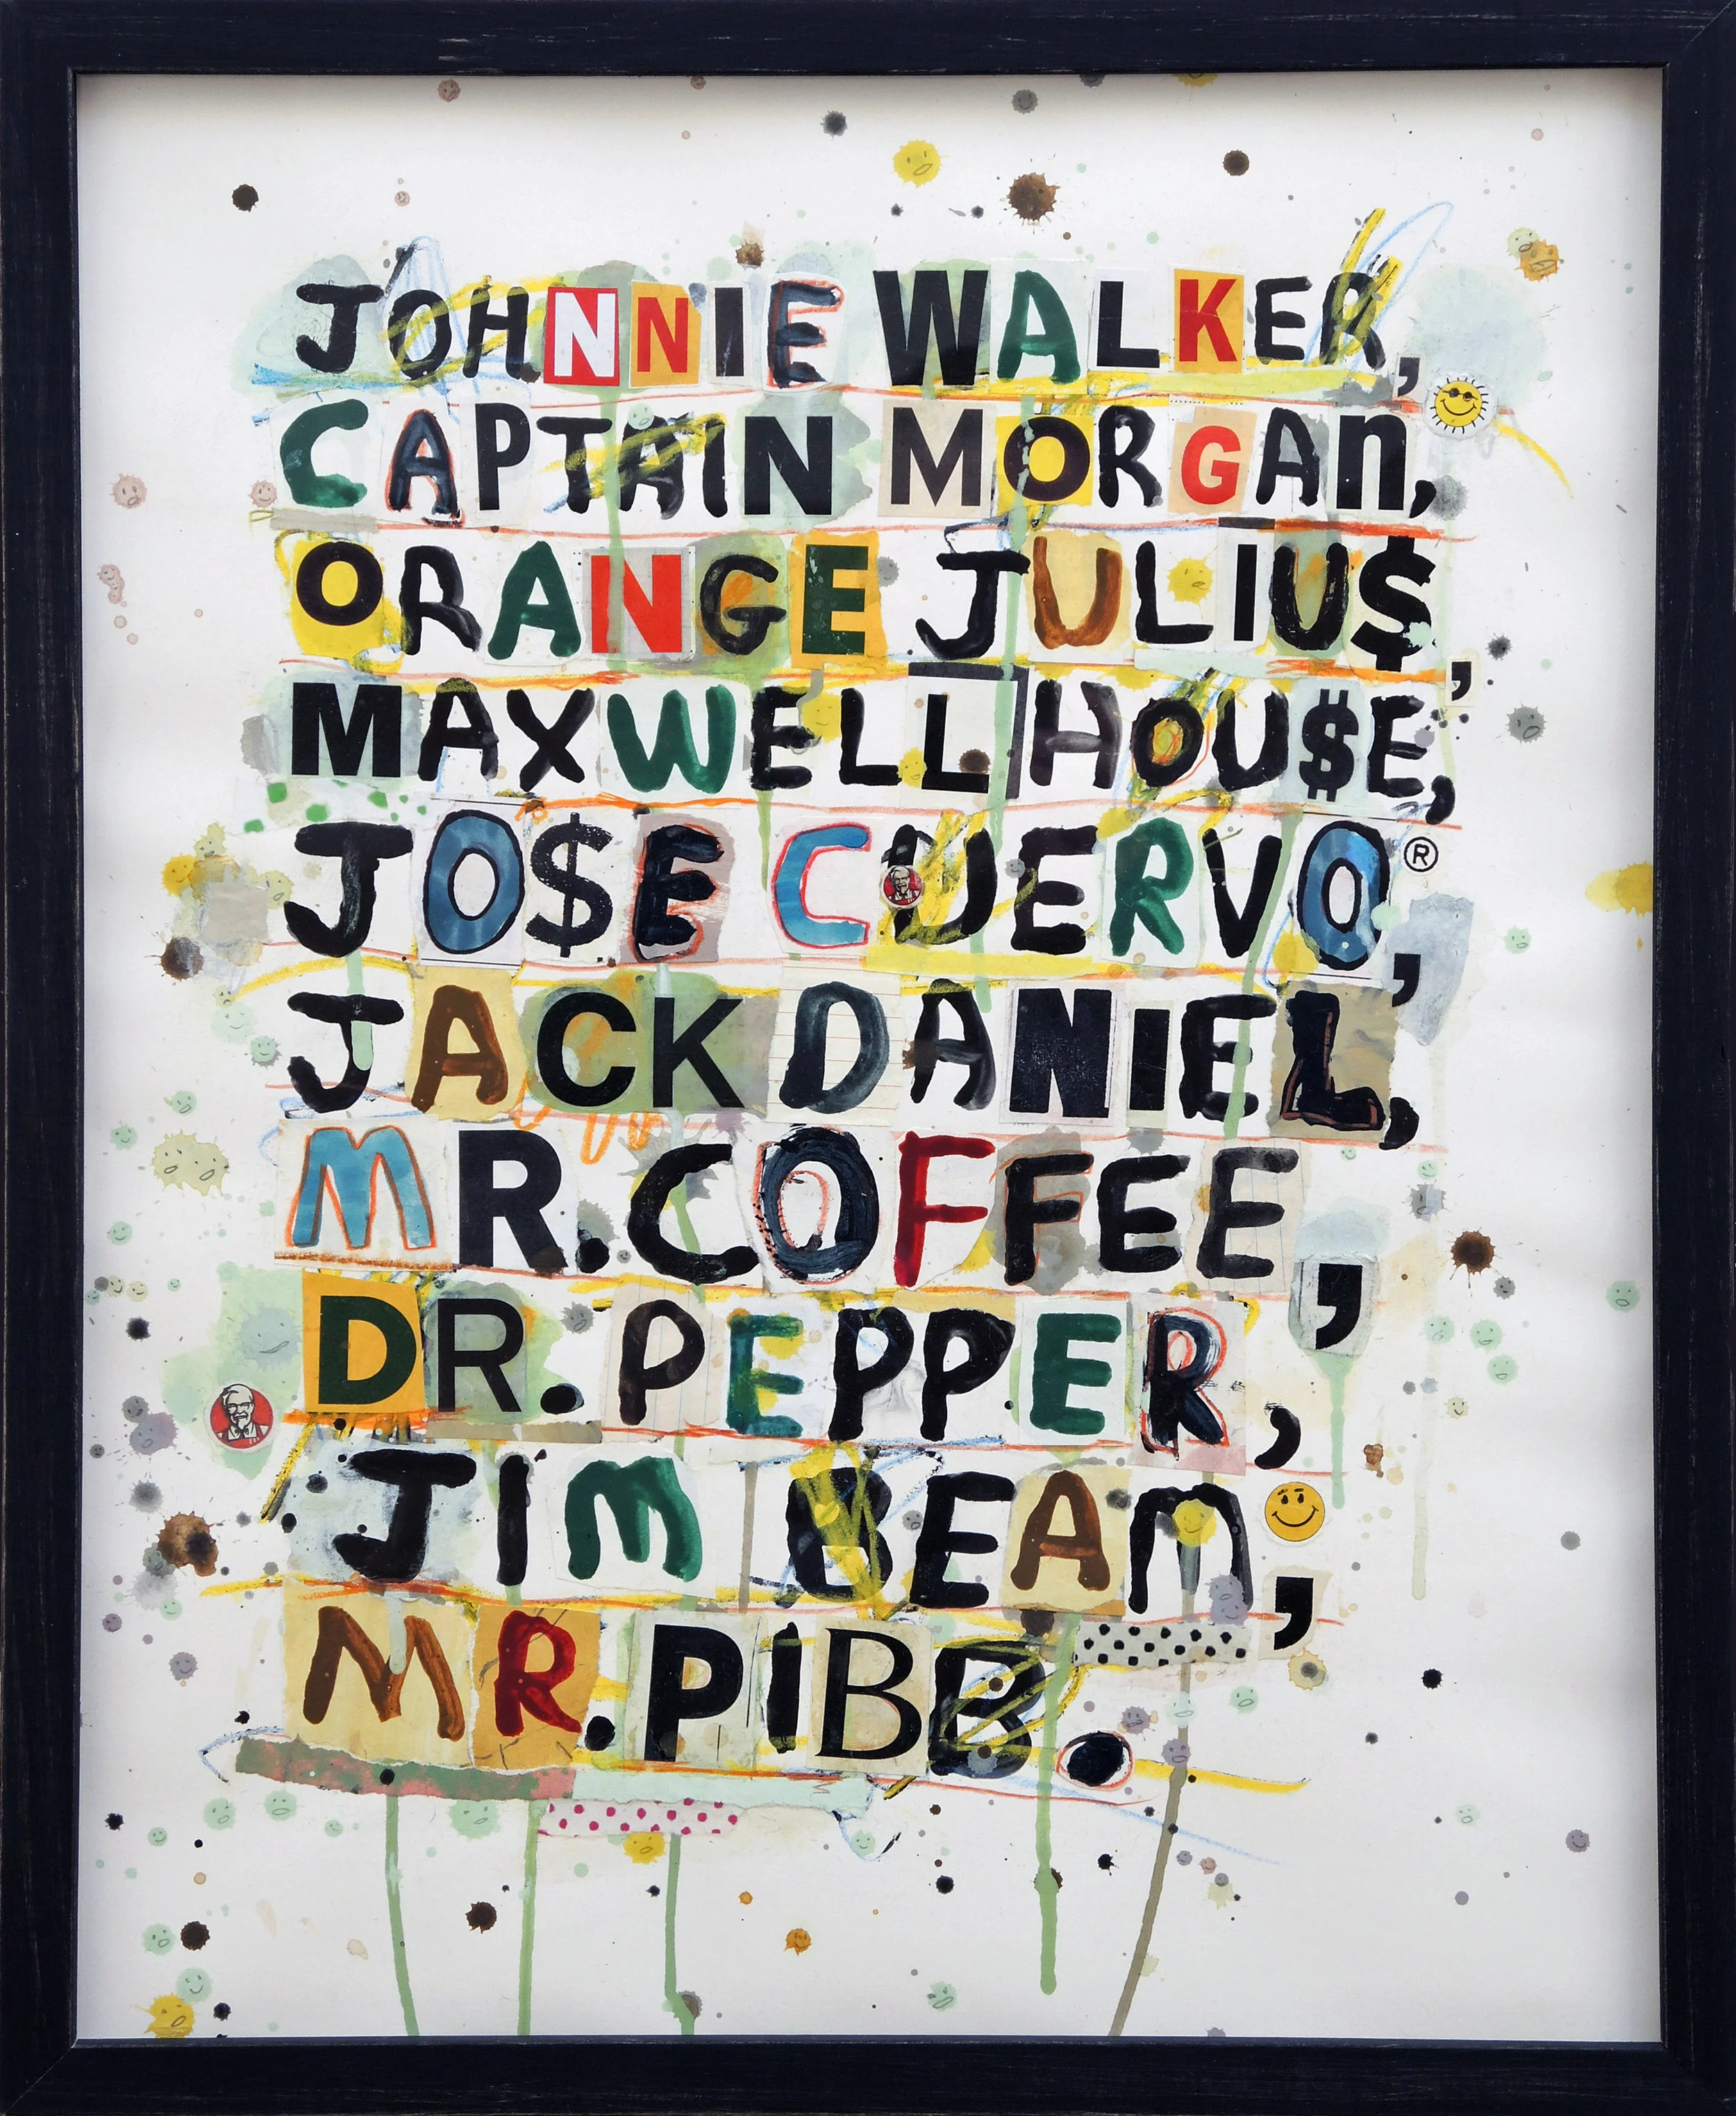 JOHNNIE WALKER,
CAPTAIN MORGAN,
ORANGE JULIU$,
MAXWELL HOU$E,
JO$E CUERVO®,
JACK DANIEL,
MR. COFFEE,
DR. PEPPER,
JIM BEAM,
MR. PIBB.